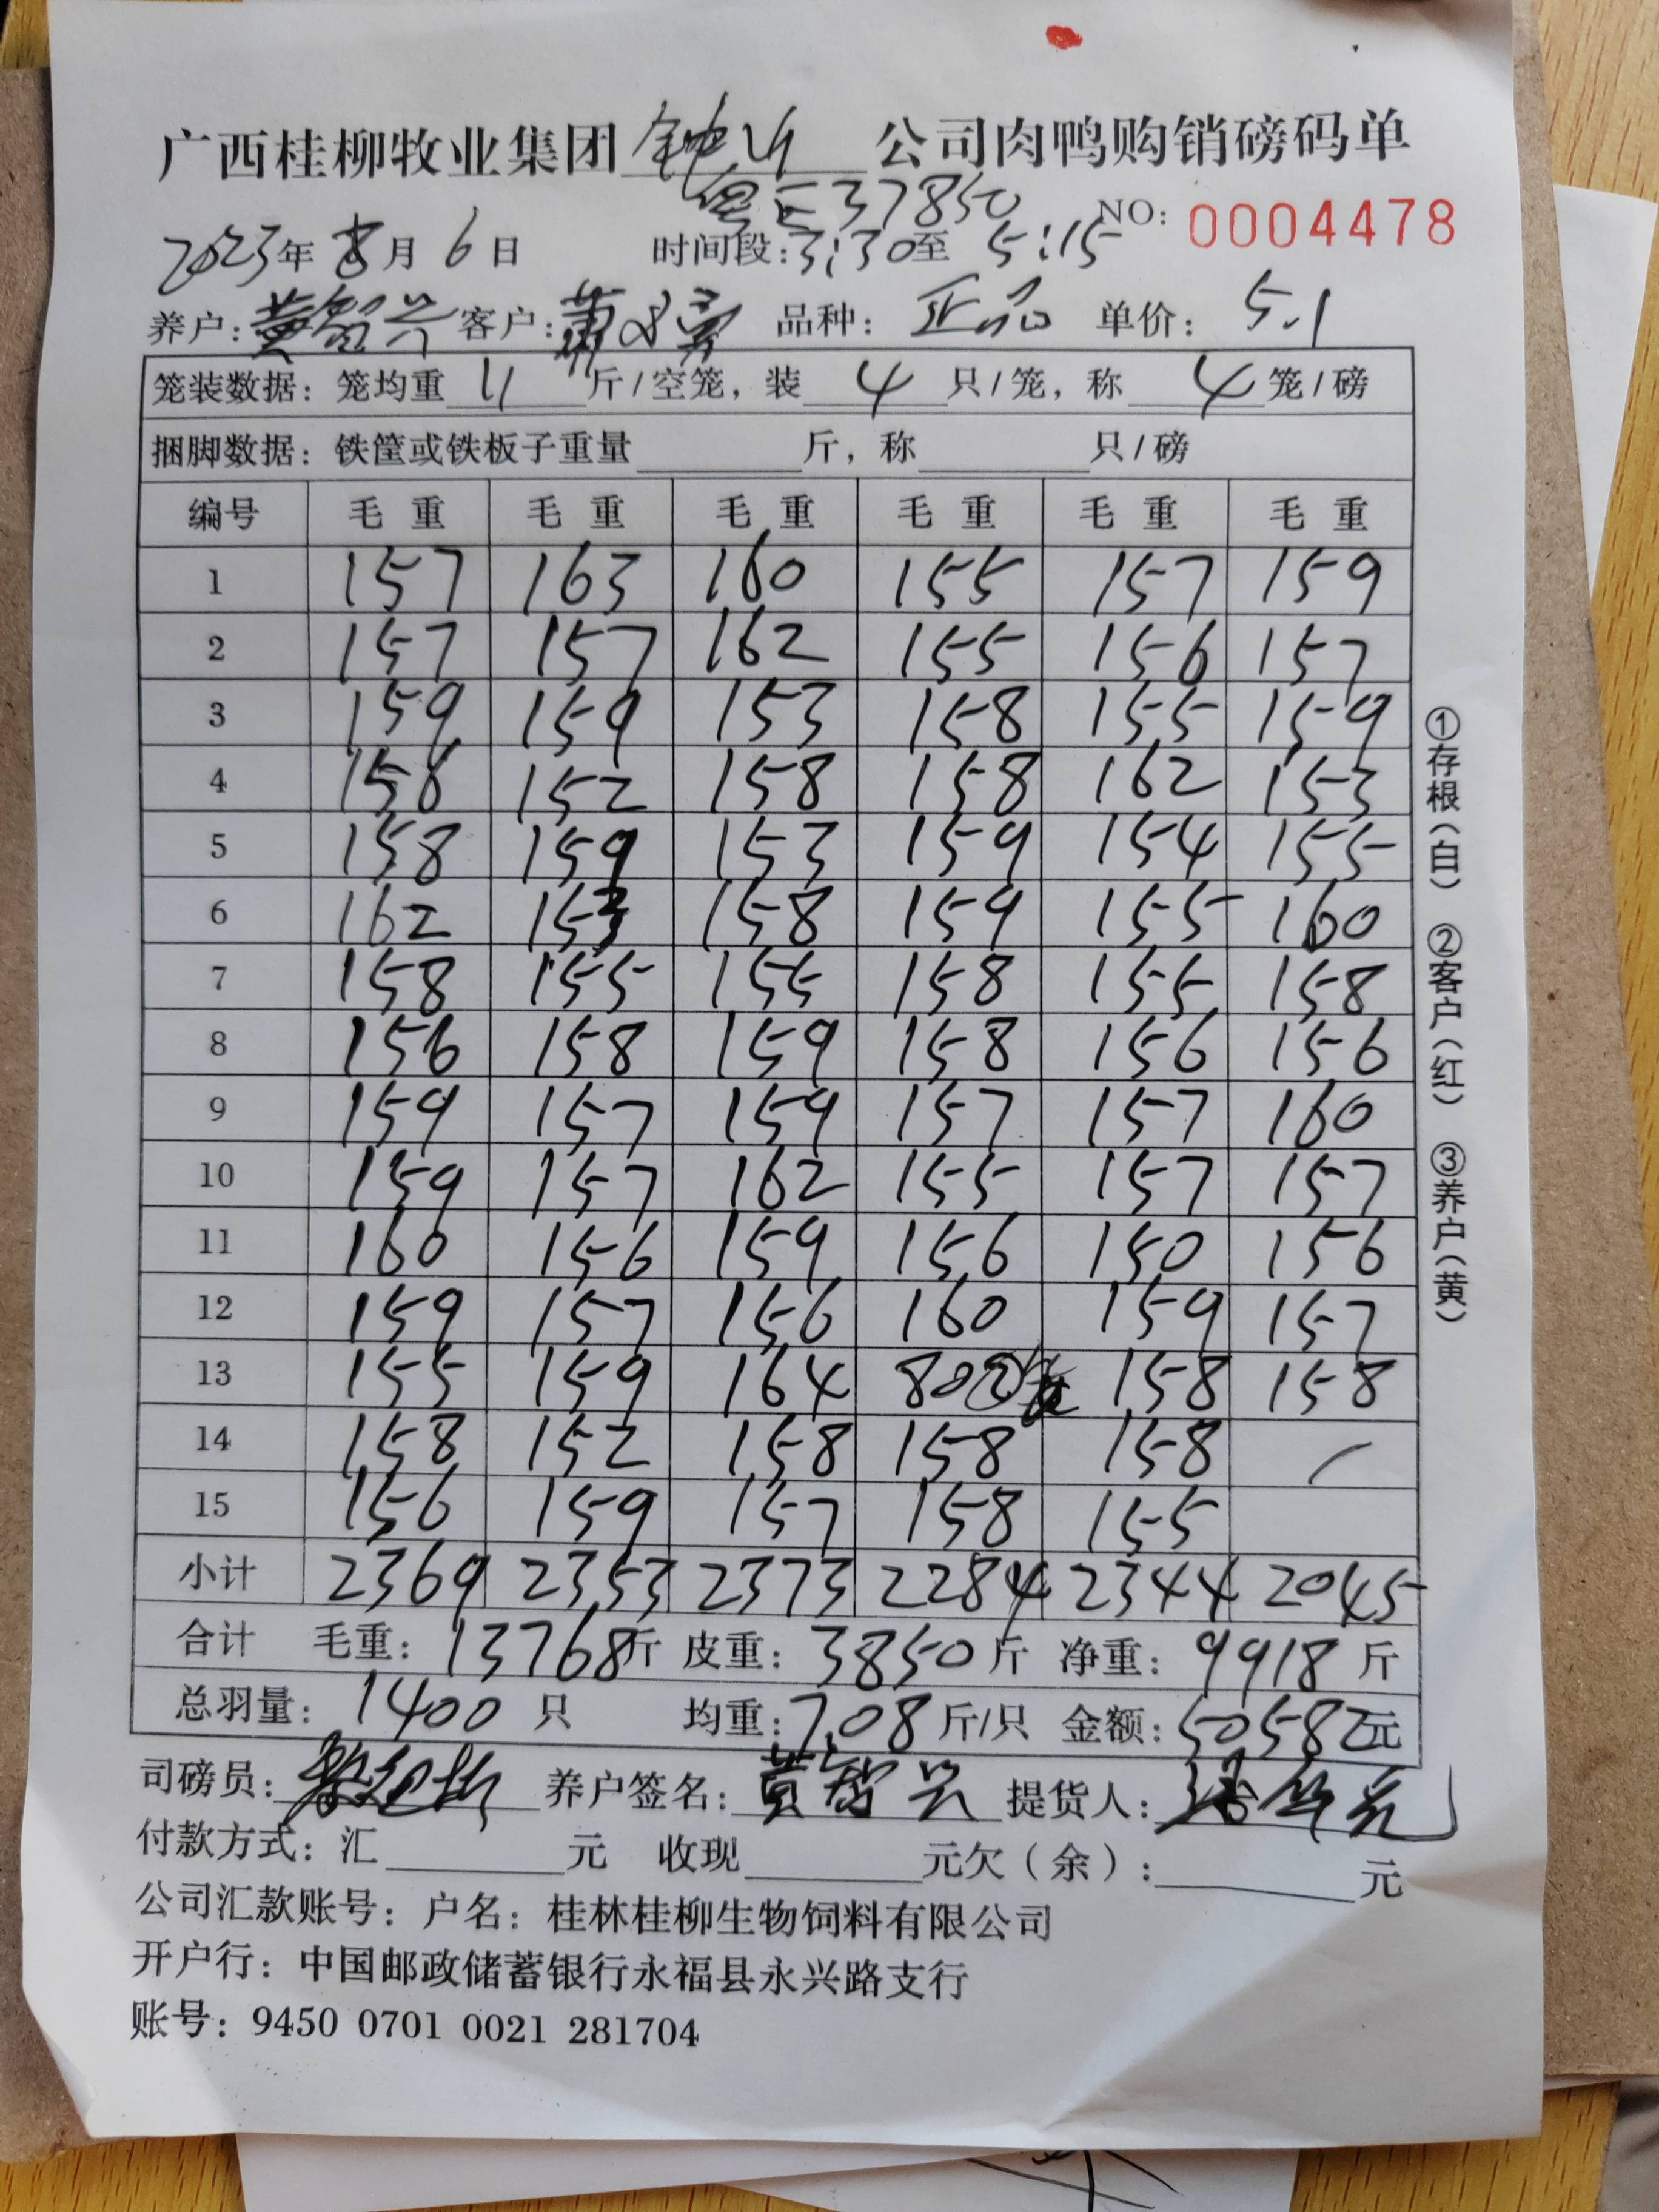 广西桂柳牧业集团 钟山 公司肉鸭购销磅码单
粤E37850
NO: 0004478
2023年 8月 6日 时间段:3:30至 5:15
养户: 黄智兴 客户: 品种: 正品 单价: 5.1
笼装数据: 笼均重 11 斤/空笼, 装 4 只/笼, 称 4 笼/磅
捆脚数据: 铁筐或铁板子重量 斤, 称 只/磅
编号 毛重 毛重 毛重 毛重 毛重 毛重
1 157 163 160 155 157 159
2 157 157 162 155 156 157
3 159 159 153 158 155 159
4 158 152 158 158 162 153
5 158 159 153 159 154 155
6 162 153 158 159 155 160
7 158 155 155 158 155 158
8 156 158 159 158 156 156
9 159 157 159 157 157 160
10 159 157 162 155 157 157
11 160 156 159 156 150 156
12 159 157 156 160 159 157
13 155 159 164 80② 158 158
14 158 152 158 158 158 /
15 156 159 157 158 155
小计 2369 2353 2373 2284 2344 2045
合计 毛重: 13768斤 皮重: 3850斤 净重: 9918斤
总羽量: 1400 只 均重: 7.08 斤/只 金额: 50582元
司磅员: 养户签名: 黄智兴 提货人:
付款方式: 汇 元 收现 元欠(余): 元
公司汇款账号: 户名: 桂林桂柳生物饲料有限公司
开户行: 中国邮政储蓄银行永福县永兴路支行
账号: 9450 0701 0021 281704
①存根(白) ②客户(红) ③养户(黄)